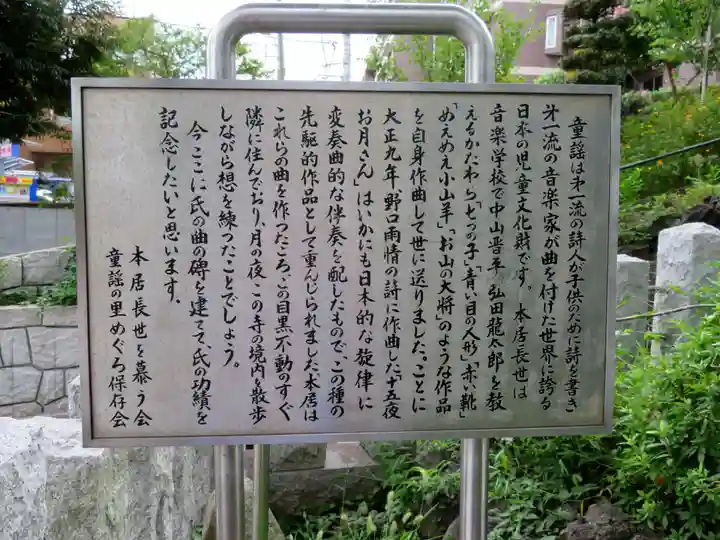 童謡は才一流の詩人が子供のために詩を書き
才一流の音楽家が曲を付けた世界に誇る
日本の児童文化財です。本居長世は
音楽学校で中山晋平、弘田龍太郎を教
えるかたわら「七つの子」「青い目の人形」「赤い靴」
「めえめえ小山羊」「お山の大将」のような作品
を自身作曲して世に送りました。ことに
大正九年、野口雨情の詩に作曲した「十五夜
お月さん」はいかにも日本的な旋律に
変奏曲的な伴奏を配したもので、この種の
先駆的作品として重んじられました。本居は
これらの曲を作ったころ、この目黒不動のすぐ
隣に住んでおり、月の夜、この寺の境内を散歩
しながら想を練ったことでしょう。
今ここに氏の曲の碑を建てて、氏の功績を
記念したいと思います。
本居長世を慕う会
童謡の里めぐろ保存会